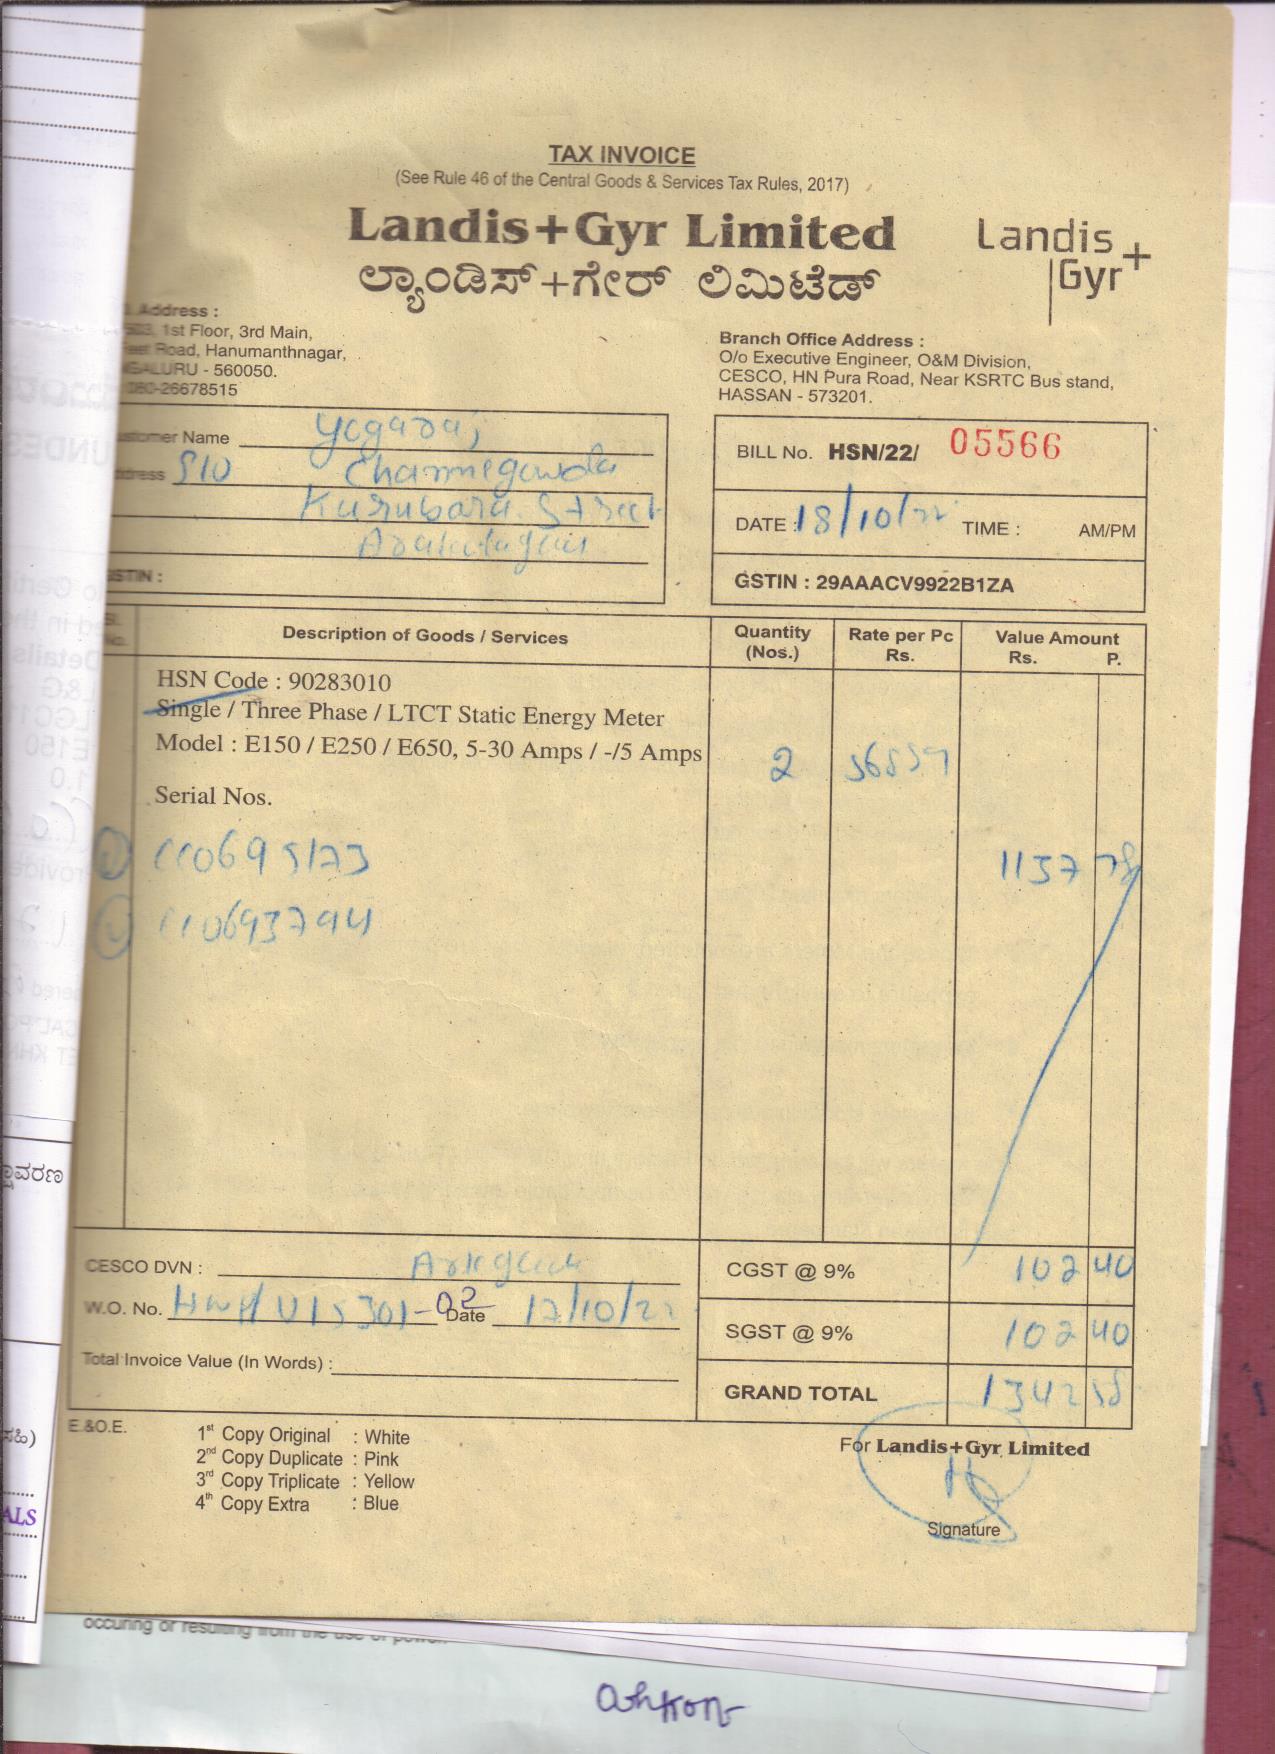 TAX INVOICE
(See Rule 46 of the Central Goods & Services Tax Rules, 2017)
Landis+Gyr Limited
ಲ್ಯಾಂಡಿಸ್+ಗೇರ್ ಲಿಮಿಟೆಡ್
Landis+
Gyr
Address :
1st Floor, 3rd Main,
Road, Hanumanthnagar,
- 560050.
080-26678515
Branch Office Address :
O/o Executive Engineer, O&M Division,
CESCO, HN Pura Road, Near KSRTC Bus stand,
HASSAN - 573201.
Customer Name Yogaraj
Address S/O Channegowda
Kurubara Street
GSTIN :
BILL No. HSN/22/ 05566
DATE : 18/10/22 TIME : AM/PM
GSTIN : 29AAACV9922B1ZA
Sl. No. Description of Goods / Services Quantity (Nos.) Rate per Pc Rs. Value Amount Rs. P.
HSN Code : 90283010
Single / Three Phase / LTCT Static Energy Meter
Model : E150 / E250 / E650, 5-30 Amps / -/5 Amps 2
Serial Nos.
1137 78
CESCO DVN :
W.O. No. Date 17/10/22
Total Invoice Value (In Words) :
CGST @ 9% 102 40
SGST @ 9% 102 40
GRAND TOTAL 1342 58
E.&O.E.
1st Copy Original : White
2nd Copy Duplicate : Pink
3rd Copy Triplicate : Yellow
4th Copy Extra : Blue
For Landis+Gyr Limited
Signature
occuring or resulting from the use of power.